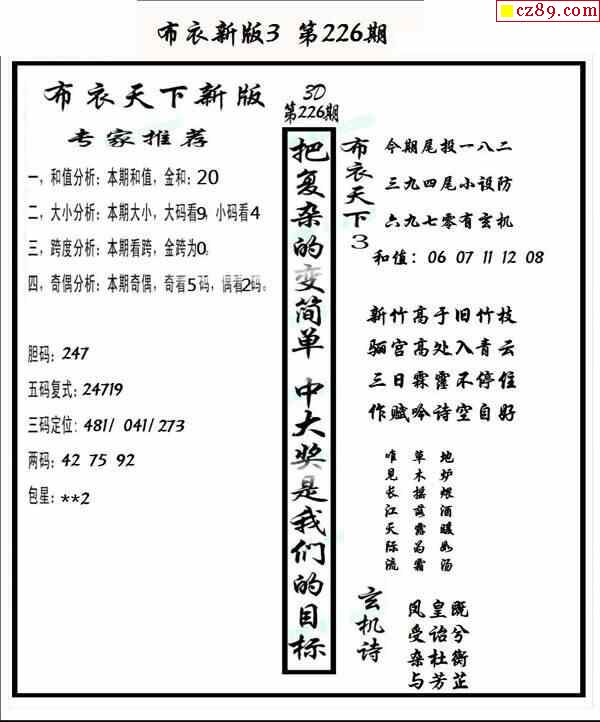 cz89.com
布衣新版3 第226期
布衣天下新版
专家推荐
一，和值分析：本期和值，金和：20
二，大小分析：本期大小，大码看9，小码看4
三，跨度分析：本期看跨，金跨为0。
四，奇偶分析：本期奇偶，奇看5码，偶看2码。
胆码：247
五码复式：24719
三码定位：481/ 041/273
两码：42 75 92
包星：**2
3D
第226期
把复杂的变简单 中大奖是我们的目标
布衣天下3
今期尾投一八二
三九四尾小设防
六九七零有玄机
和值：06 07 11 12 08
新竹高于旧竹枝
骊宫高处入青云
三日霖霪不停住
作赋吟诗空自好
唯见长江天际流
草木摇落露为霜
地炉煨酒暖如汤
玄机诗
凤皇既
受诒兮
杂杜衡
与芳芷